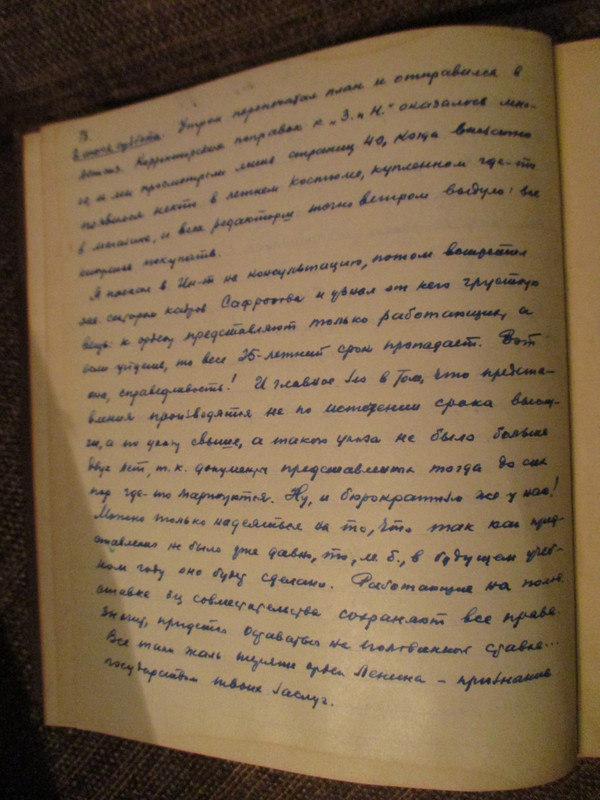 8 июня, суббота. Утром перепечатал план и отправился в
Корректорских поправок к „З. и Н." оказалось мно-
го, и мы просмотрели лишь страниц 40, когда внезапно
появился некто в летнем костюме, купленном где-то
в магазине, и всех редакторш точно ветром выдуло: все
покупать.
Я поехал в Ин-т на консультацию, потом посетил
зав. сектором кадров Сафронова и узнал от него грустную
вещь: к ордену представляют только работающих, а
если уйдешь, то весь 25-летний срок пропадает. Вот
она, справедливость! И главное зло в том, что представ-
ления производятся не по истечении срока выслу-
ги, а по указу свыше, а такого указа не было больше
двух лет, т. к. документы представленных тогда до сих
пор где-то маринуются. Ну, и бюрократизм же у нас!
Можно только надеяться на то, что так как пред-
ставления не было уже давно, то, м. б., в будущем учеб-
ном году оно будет сделано. Работающие на полов.
ставке без совместительства сохраняют все права.
Значит, придется оставаться на половинной ставке...
Все-таки жаль терять орден Ленина – признание
государством твоих заслуг.